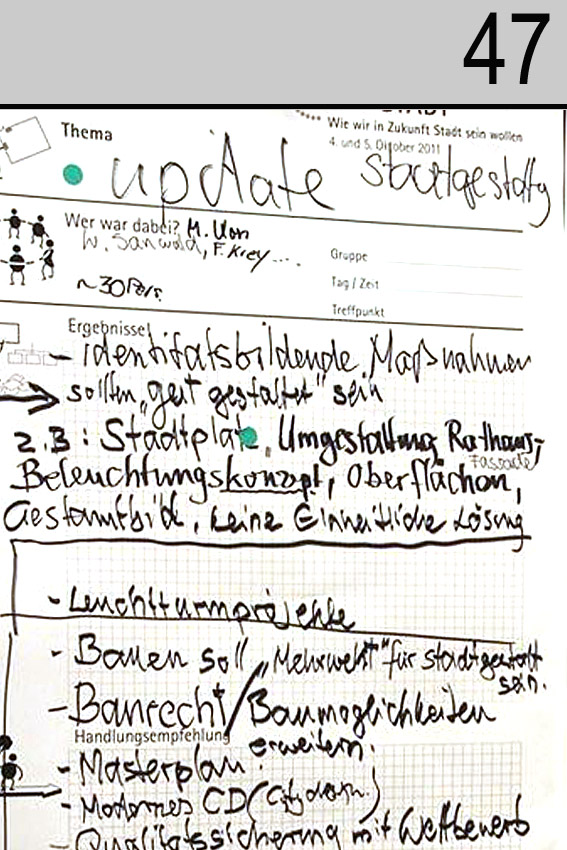 47
STADT
Wie wir in Zukunft Stadt sein wollen
4. und 5. Oktober 2011
Thema
update Stadtgestaltg
Wer war dabei? M. Uon
W. Sanwald, F. Krey....
~30 Pers.
Gruppe
Tag / Zeit
Treffpunkt
Ergebnisse
- identitätsbildende Maßnahmen
sollten „gut gestaltet" sein
z.B: Stadtplatz, Umgestaltung Rathaus-
Fassade
Beleuchtungskonzept, Oberflächen,
Gesamtbild, keine Einheitliche Lösung
- Leuchtturmprojekte
- Bauen soll „Mehrwert" für Stadtgestalt
sein.
- Baurecht/Baumöglichkeiten
erweitern.
Handlungsempfehlung
- Masterplan.
- Modernes CD (Citydesign.)
- Qualitätssicherung mit Wettbewerb